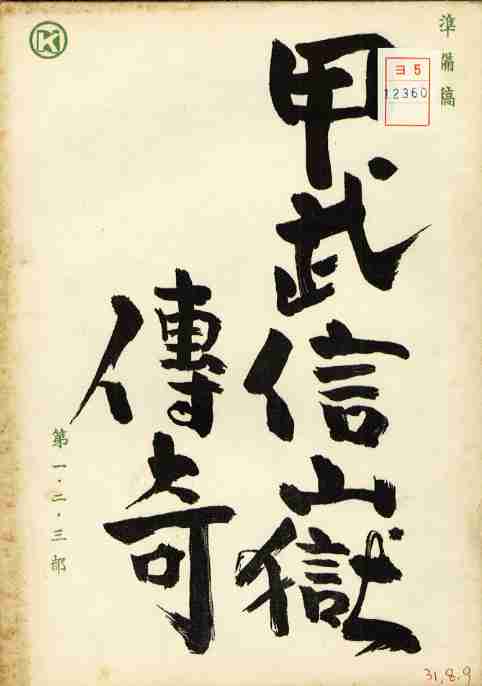 準備稿
甲武信山嶽
傳奇
第一・二・三部
K
ヨ5
12360
31.8.9